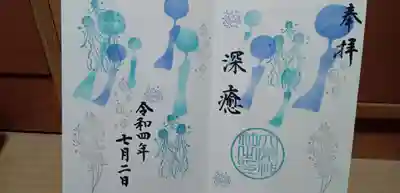 奉拝
深癒
令和四年
七月二日